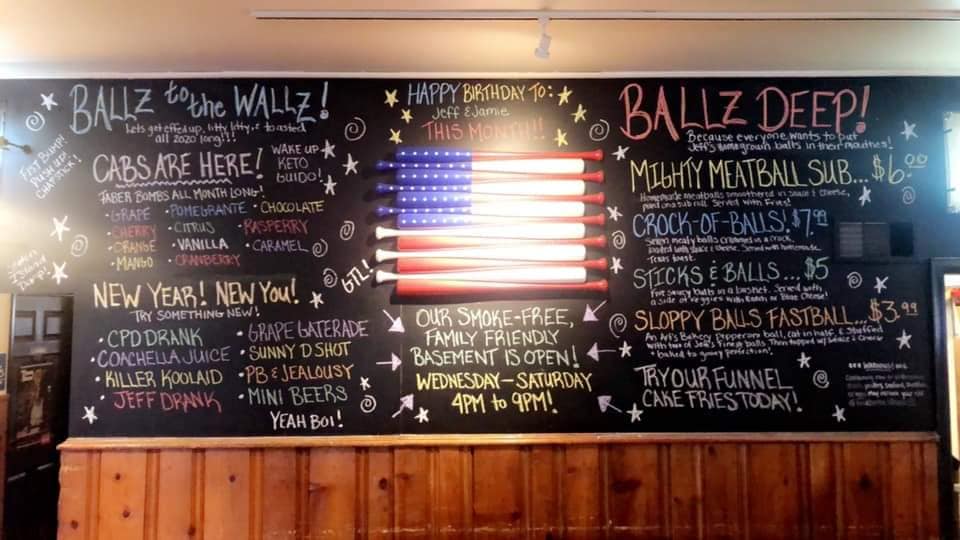 BALLZ to the WALLZ!
Lets get effed up, litty litty, & toasted
all 2020 long!!!
FIST BUMP!
PUSH UP!
CHAPSTICK!
CABS ARE HERE!
WAKE UP
KETO
GUIDO!
JABER BOMBS ALL MONTH LONG!
• GRAPE • POMEGRANTE • CHOCOLATE
• CHERRY • CITRUS • RASPERRY
• ORANGE • VANILLA • CARAMEL
• MANGO • CRANBERRY
GTL!
NEW YEAR! NEW YOU!
TRY SOMETHING NEW!
• CPD DRANK • GRAPE GATERADE
• COACHELLA JUICE • SUNNY D SHOT
• KILLER KOOLAID • PB & JEALOUSY
• JEFF DRANK • MINI BEERS
YEAH BOI!
HAPPY BIRTHDAY TO:
Jeff & Jamie
THIS MONTH!!
OUR SMOKE-FREE,
FAMILY FRIENDLY
BASEMENT IS OPEN!
WEDNESDAY-SATURDAY
4PM to 9PM!
BALLZ DEEP!
Because everyone wants to put
Jeff's homegrown balls in their mouthes!
MIGHTY MEATBALL SUB... $6.00
Homemade meatballs smoothered in sauce & cheese,
put on a sub roll. Served with Fries!
CROCK-OF-BALLS! $7.99
Seven meaty balls crammed in a crock,
loaded with sauce & cheese. Served with homemade
Texas toast.
STICKS & BALLS... $5
Five saucy balls in a basket. Served with
a side of veggies with Ranch or Blue Cheese!
SLOPPY BALLS FASTBALL... $3.99
An Art's Bakery Pepperoni ball, cut in half & Stuffed
with two of Jeff's Finest balls. Then topped w/ sauce & cheese
& baked to gooey perfection!
TRY OUR FUNNEL
CAKE FRIES TODAY!